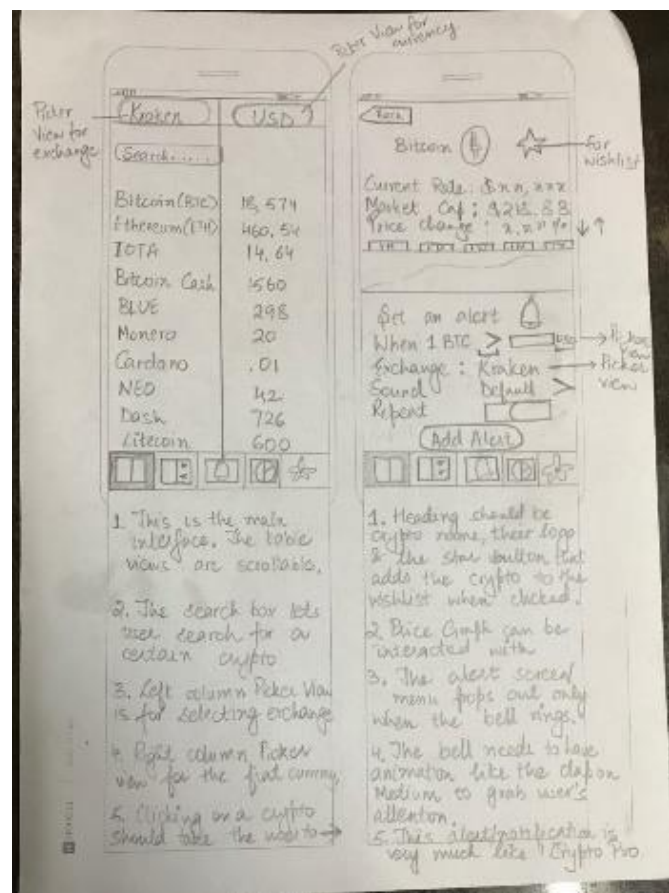 Picker View for
currency
Picker
View for
exchange
Kraken
USD
Search.....
Bitcoin (BTC) 18,574
Ethereum (ETH) 460.54
IOTA 14.64
Bitcoin Cash 560
BLUE 298
Monero 20
Cardano .01
NEO 42
Dash 726
Litecoin 600
1. This is the main
interface. The table
views are scrollable.
2. The search box lets
user search for a
certain crypto
3. Left column Picker View
is for selecting exchange
4. Right column Picker
view for the fiat currency
5. Clicking on a crypto
should take the user to →
Back
Bitcoin
for
wishlist
Current Rate: $xx,xxx
Market Cap:
Price change: x.xx% ↓↑
Set an alert
When 1 BTC > USD
Picker
view
Exchange: Kraken
Picker
view
Sound Default >
Repeat
Add Alert
1. Heading should be
crypto name, their logo
& the star button that
adds the crypto to the
wishlist when clicked.
2. Price Graph can be
interacted with
3. The alert screen/
menu pops out only
when the bell rings.
4. The bell needs to have
animation like the clap on
Medium to grab user's
attention.
5. This alert/notification is
very much like "Crypto Pro